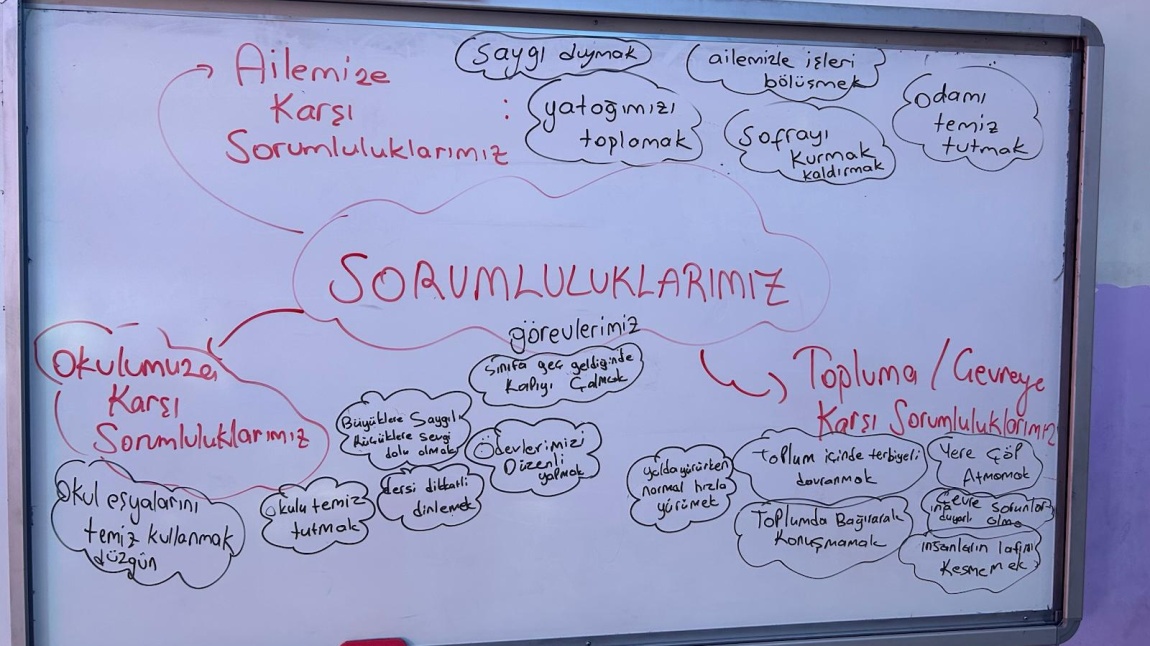 Ailemize
Karşı
Sorumluluklarımız :
Saygı duymak
ailemizle işleri
bölüşmek
yatağımızı
toplamak
Sofrayı
Kurmak
kaldırmak
Odamı
temiz
tutmak
SORUMLULUKLARIMIZ
görevlerimiz
Okulumuza
Karşı
Sorumluluklarımız
Sınıfa geç geldiğinde
Kapıyı Çalmak
Büyüklere Saygılı
Küçüklere sevgi
dolu olmak
Ödevlerimizi
Düzenli
yapmak
dersi dikkatli
dinlemek
Okulu temiz
tutmak
Okul eşyalarını
temiz kullanmak
düzgün
Topluma / Çevreye
Karşı Sorumluluklarımız
yolda yürürken
normal hızla
yürümek
Toplum içinde terbiyeli
davranmak
Toplumda Bağırarak
Konuşmamak
Yere Çöp
Atmamak
Çevre sorunlar
ına duyarlı olma
insanların lafını
Kesmemek